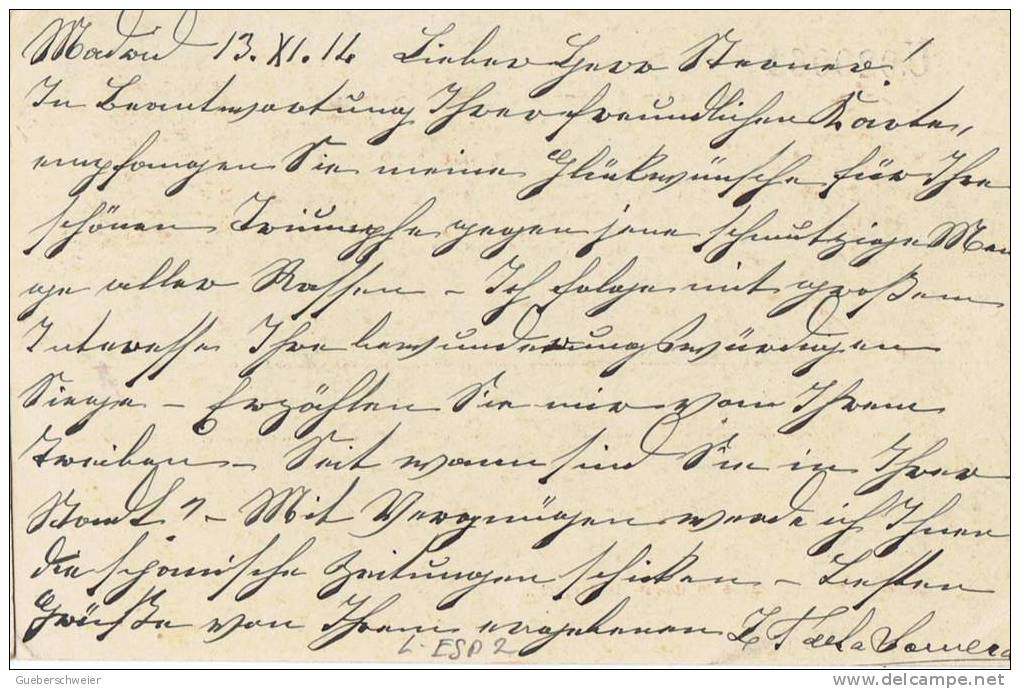 Madrid 13.XI.14 Lieber Herr Sterner!
In Beantwortung Ihrer freundlichen Karte,
empfangen Sie meine Glükwünsche für Ihre
schönen Triumphe gegen jene schmutzige Men
ge aller Rassen – Ich folge mit großem
Interesse Ihre bewunderungswürdigen
Siege – Erzählen Sie mir von Ihrem
Treiben – Seit wann sind Sie in Ihrer
Stadt? – Mit Vergnügen werde ich Ihnen
die spanische Zeitungen schicken – Besten
Grüße von Ihrem ergebenen
L. ESP 2
Gueberschweier
www.delcampe.net